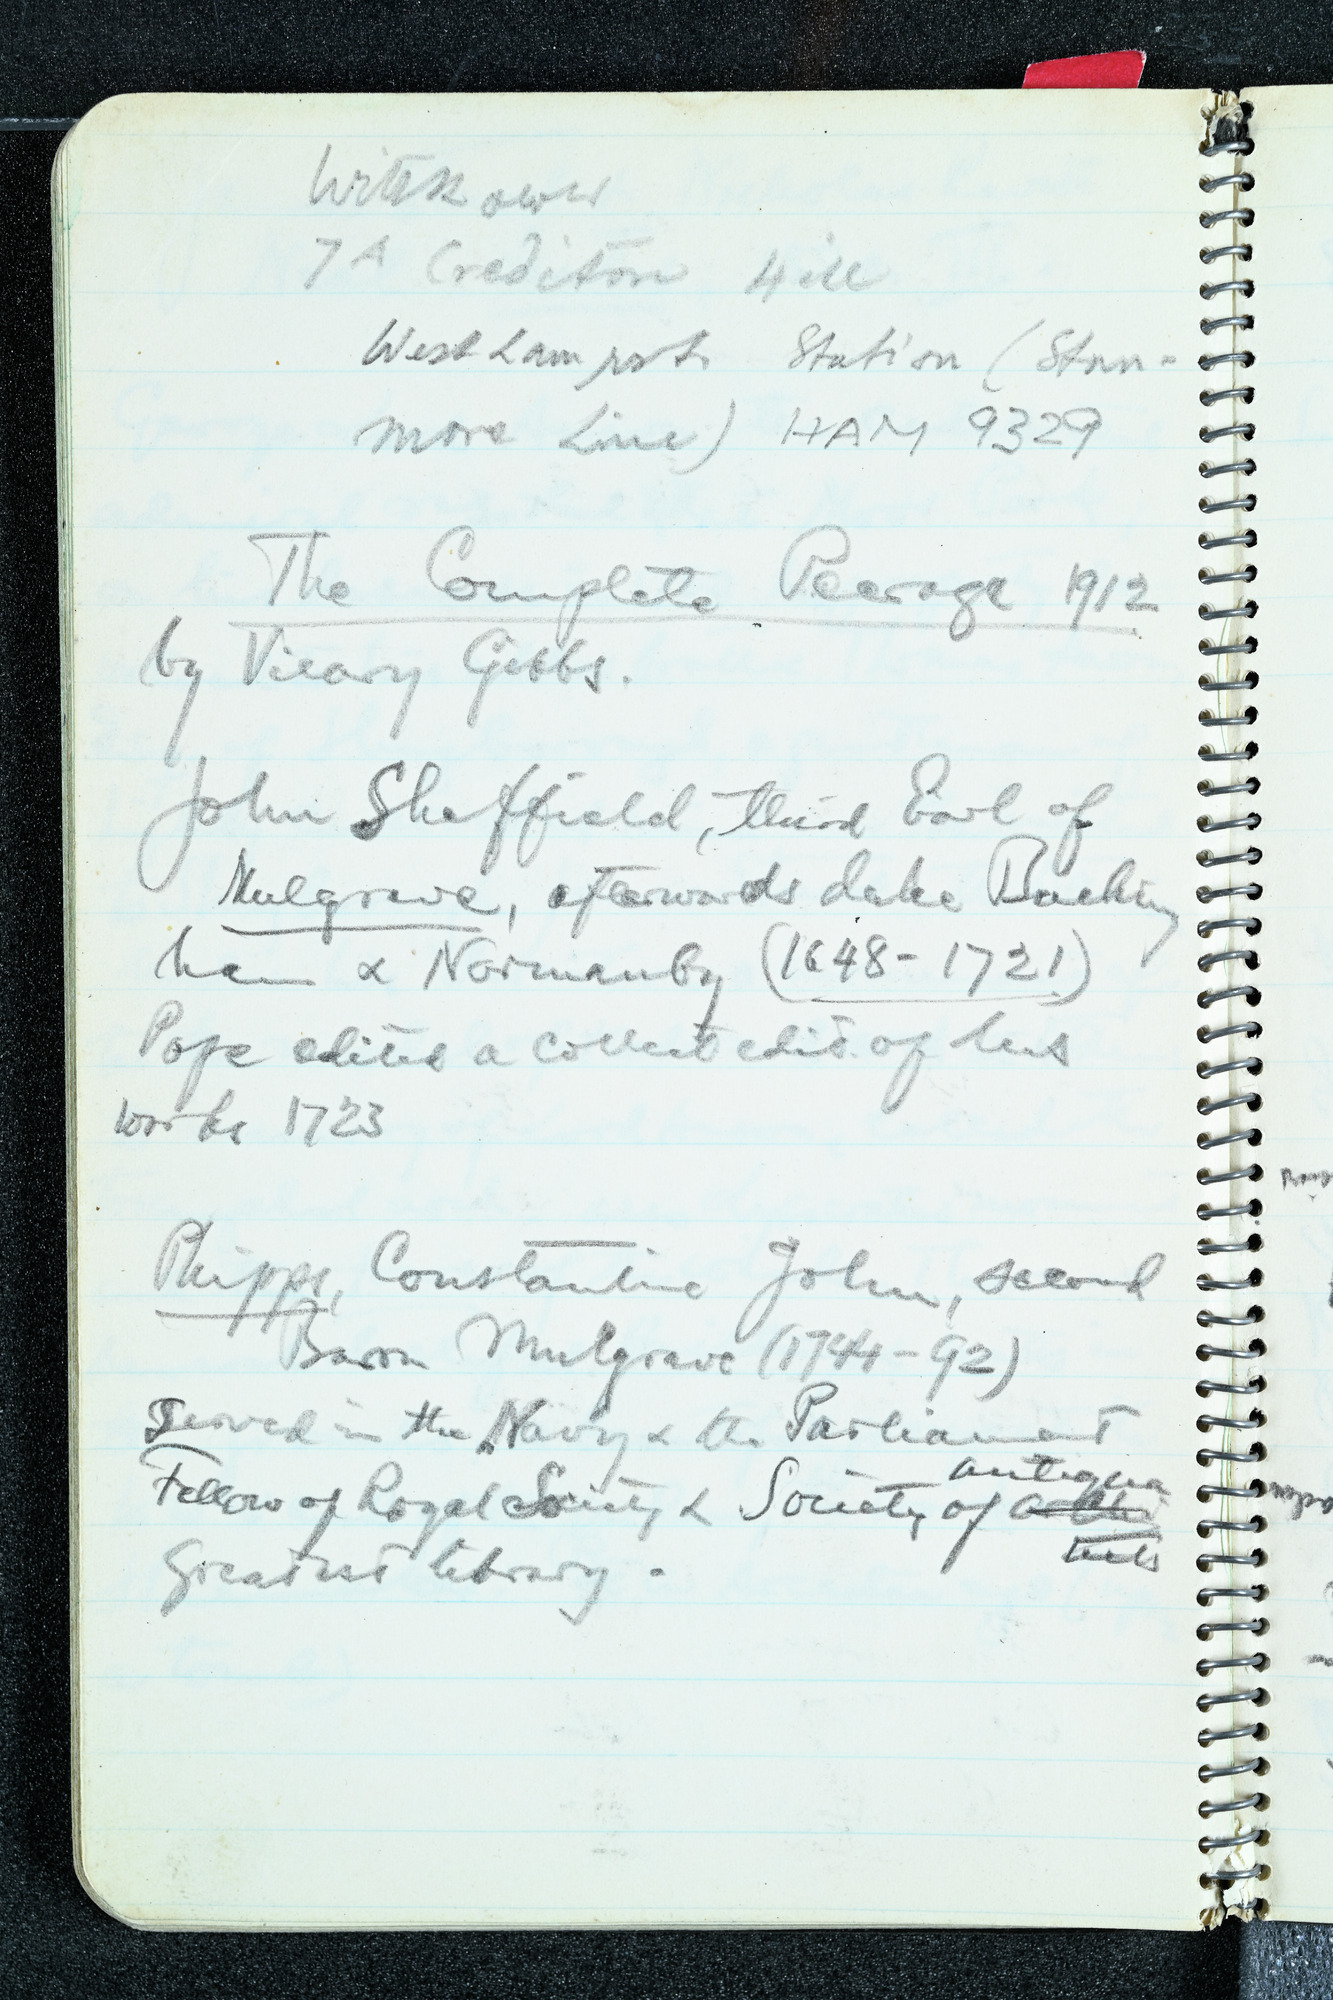 Wittkower
7A Crediton Hill
West Hampst. Station (Stan-
more Line) HAM 9329
The Complete Peerage 1912
by Vicary Gibbs.
John Sheffield, third Earl of
Mulgrave, afterwards duke Bucking
ham & Normanby (1648-1721)
Pope edited a collect edit. of his
works 1723
Phipps, Constantine John, second
Baron Mulgrave (1744-92)
Served in the Navy & the Parliament
antiqua
Fellow of Royal Society & Society of
Greatest library.